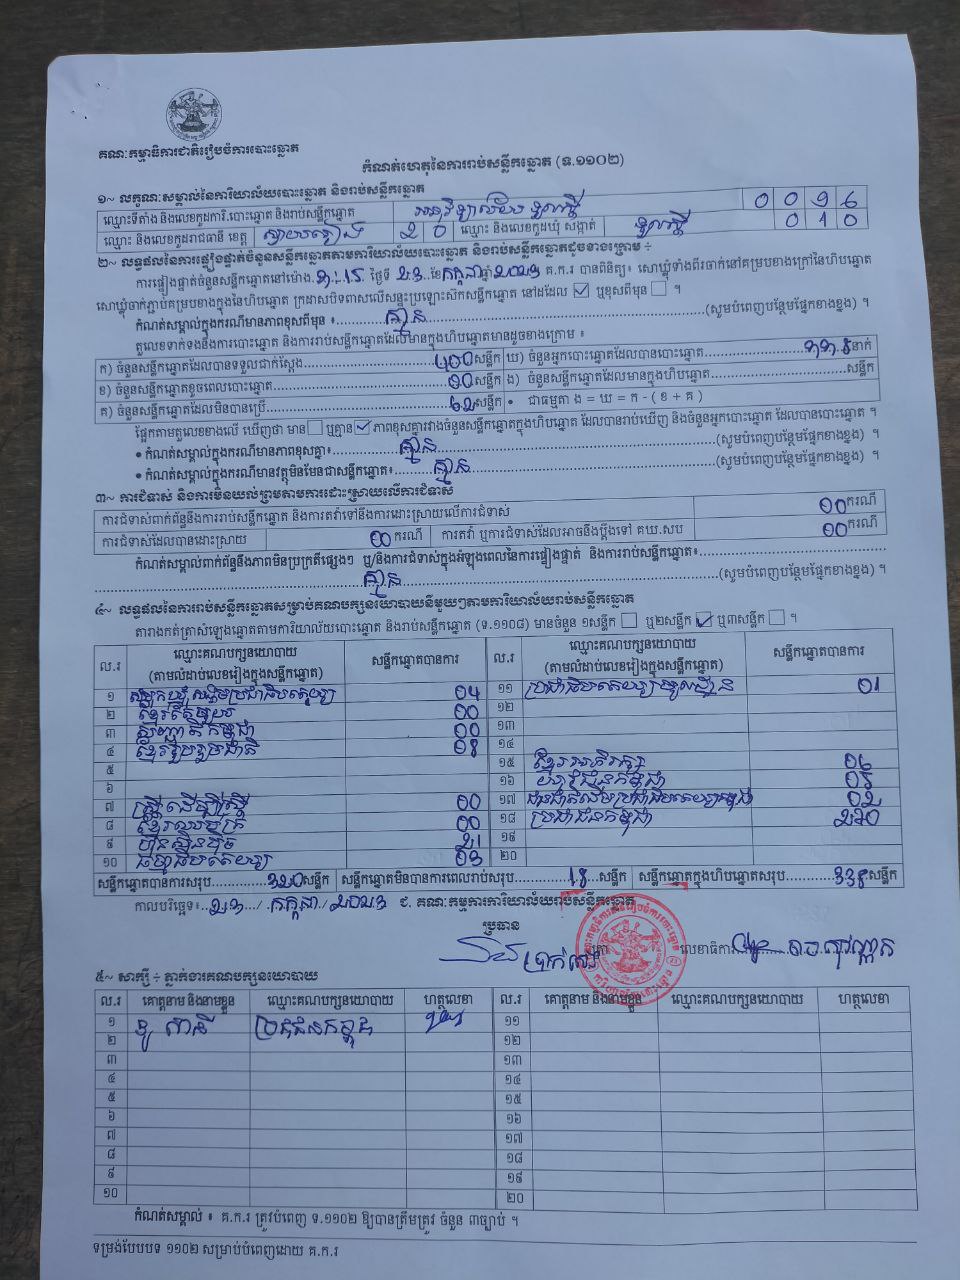 គណៈកម្មាធិការជាតិរៀបចំការបោះឆ្នោត
កំណត់ហេតុនៃការរាប់សន្លឹកឆ្នោត (ទ.១១០២)
១~ លក្ខណៈសម្គាល់នៃការិយាល័យបោះឆ្នោត និងរាប់សន្លឹកឆ្នោត
ឈ្មោះទីតាំង និងលេខកូដការិ.បោះឆ្នោត និងរាប់សន្លឹកឆ្នោត
ឈ្មោះ និងលេខកូដរាជធានី ខេត្ត ស្វាយរៀង ២ 0 ឈ្មោះ និងលេខកូដឃុំ សង្កាត់ 0 ១ 0
២~ លទ្ធផលនៃការផ្ទៀងផ្ទាត់ចំនួនសន្លឹកឆ្នោតតាមការិយាល័យបោះឆ្នោត និងរាប់សន្លឹកឆ្នោតដូចខាងក្រោម ÷
ការផ្ទៀងផ្ទាត់ចំនួនសន្លឹកឆ្នោតនៅម៉ោង ៣:១៥ ថ្ងៃទី ២៣ ខែ កក្កដា ឆ្នាំ ២០២៣ គ.ក.រ បានពិនិត្យ៖ សោឃ្លុំទាំងពីរចាក់នៅគម្របខាងក្រៅនៃហិបឆ្នោត
សោឃ្លុំចាក់ភ្ជាប់គម្របខាងក្នុងនៃហិបឆ្នោត ក្រដាសបិទពាសលើសន្ទះប្រឡោះស៊កសន្លឹកឆ្នោត នៅដដែល ☑ ឬខុសពីមុន ☐ ។
កំណត់សម្គាល់ក្នុងករណីមានភាពខុសពីមុន ៖ គ្មាន (សូមបំពេញបន្ថែមផ្នែកខាងខ្នង) ។
តួលេខទាក់ទងនឹងការបោះឆ្នោត និងការរាប់សន្លឹកឆ្នោតដែលមានក្នុងហិបឆ្នោតមានដូចខាងក្រោម ៖
ក) ចំនួនសន្លឹកឆ្នោតដែលបានទទួលជាក់ស្ដែង ៤០០ សន្លឹក ឃ) ចំនួនអ្នកបោះឆ្នោតដែលបានបោះឆ្នោត ៣៣៨ នាក់
ខ) ចំនួនសន្លឹកឆ្នោតខូចពេលបោះឆ្នោត ០០ សន្លឹក ង) ចំនួនសន្លឹកឆ្នោតដែលមានក្នុងហិបឆ្នោត សន្លឹក
គ) ចំនួនសន្លឹកឆ្នោតដែលមិនបានប្រើ ៦២ សន្លឹក • ជាធម្មតា ង = ឃ = ក - ( ខ + គ )
ផ្អែកតាមតួលេខខាងលើ ឃើញថា មាន ☐ ឬគ្មាន ☑ ភាពខុសគ្នារវាងចំនួនសន្លឹកឆ្នោតក្នុងហិបឆ្នោត ដែលបានរាប់ឃើញ និងចំនួនអ្នកបោះឆ្នោត ដែលបានបោះឆ្នោត ។
• កំណត់សម្គាល់ក្នុងករណីមានភាពខុសគ្នា៖ គ្មាន (សូមបំពេញបន្ថែមផ្នែកខាងខ្នង) ។
• កំណត់សម្គាល់ក្នុងករណីមានវត្ថុមិនមែនជាសន្លឹកឆ្នោត៖ គ្មាន (សូមបំពេញបន្ថែមផ្នែកខាងខ្នង) ។
៣~ ការជំទាស់ និងការមិនយល់ព្រមតាមការដោះស្រាយលើការជំទាស់
ការជំទាស់ពាក់ព័ន្ធនឹងការរាប់សន្លឹកឆ្នោត និងការតវ៉ាទៅនឹងការដោះស្រាយលើការជំទាស់ ០០ ករណី
ការជំទាស់ដែលបានដោះស្រាយ ០០ ករណី ការតវ៉ា ឬការជំទាស់ដែលអាចនឹងប្ដឹងទៅ គឃ.សប ០០ ករណី
កំណត់សម្គាល់ពាក់ព័ន្ធនឹងភាពមិនប្រក្រតីផ្សេងៗ ឬ/និងការជំទាស់ក្នុងអំឡុងពេលនៃការផ្ទៀងផ្ទាត់ និងការរាប់សន្លឹកឆ្នោត៖
គ្មាន (សូមបំពេញបន្ថែមផ្នែកខាងខ្នង) ។
៤~ លទ្ធផលនៃការរាប់សន្លឹកឆ្នោតសម្រាប់គណបក្សនយោបាយនីមួយៗតាមការិយាល័យរាប់សន្លឹកឆ្នោត
តារាងកត់ត្រាសំឡេងឆ្នោតតាមការិយាល័យបោះឆ្នោត និងរាប់សន្លឹកឆ្នោត (ទ.១១០៨) មានចំនួន ១សន្លឹក ☐ ឬ២សន្លឹក ☑ ឬ៣សន្លឹក ☐ ។
ល.រ ឈ្មោះគណបក្សនយោបាយ (តាមលំដាប់លេខរៀងក្នុងសន្លឹកឆ្នោត) សន្លឹកឆ្នោតបានការ ល.រ ឈ្មោះគណបក្សនយោបាយ (តាមលំដាប់លេខរៀងក្នុងសន្លឹកឆ្នោត) សន្លឹកឆ្នោតបានការ
១ សំបុកឃ្មុំសង្គមប្រជាធិបតេយ្យ 0៤ ១១ ប្រជាធិបតេយ្យមូលដ្ឋាន 01
២ 00 ១២
៣ 00 ១៣
៤ ខ្មែររួបរួមជាតិ 0៩ ១៤
៥ ១៥ ខ្មែរអភិរក្ស 0៦
៦ ១៦ យុវជនកម្ពុជា
៧ ស្ត្រីដើម្បីស្ត្រី 00 ១៧ ជនជាតិដើមប្រជាធិបតេយ្យកម្ពុជា 0២
៨ 00 ១៨ ប្រជាជនកម្ពុជា
៩ ហ៊្វុនស៊ិនប៉ិច ២1 ១៩
១០ ធម្មាធិបតេយ្យ 0៣ ២០
សន្លឹកឆ្នោតបានការសរុប ៣២០ សន្លឹក សន្លឹកឆ្នោតមិនបានការពេលរាប់សរុប ១៨ សន្លឹក សន្លឹកឆ្នោតក្នុងហិបឆ្នោតសរុប ៣៣៨ សន្លឹក
កាលបរិច្ឆេទ៖ ២៣ / កក្កដា / ២០២៣ ជ. គណៈកម្មការការិយាល័យរាប់សន្លឹកឆ្នោត
ប្រធាន
លេខាធិការ
៥~ សាក្សី ÷ ភ្នាក់ងារគណបក្សនយោបាយ
ល.រ គោត្តនាម និងនាមខ្លួន ឈ្មោះគណបក្សនយោបាយ ហត្ថលេខា ល.រ គោត្តនាម និងនាមខ្លួន ឈ្មោះគណបក្សនយោបាយ ហត្ថលេខា
១ ប្រជាជនកម្ពុជា ១១
២ ១២
៣ ១៣
៤ ១៤
៥ ១៥
៦ ១៦
៧ ១៧
៨ ១៨
៩ ១៩
១០ ២០
កំណត់សម្គាល់ ៖ គ.ក.រ ត្រូវបំពេញ ទ.១១០២ ឱ្យបានត្រឹមត្រូវ ចំនួន ៣ច្បាប់ ។
ទម្រង់បែបបទ ១១០២ សម្រាប់បំពេញដោយ គ.ក.រ